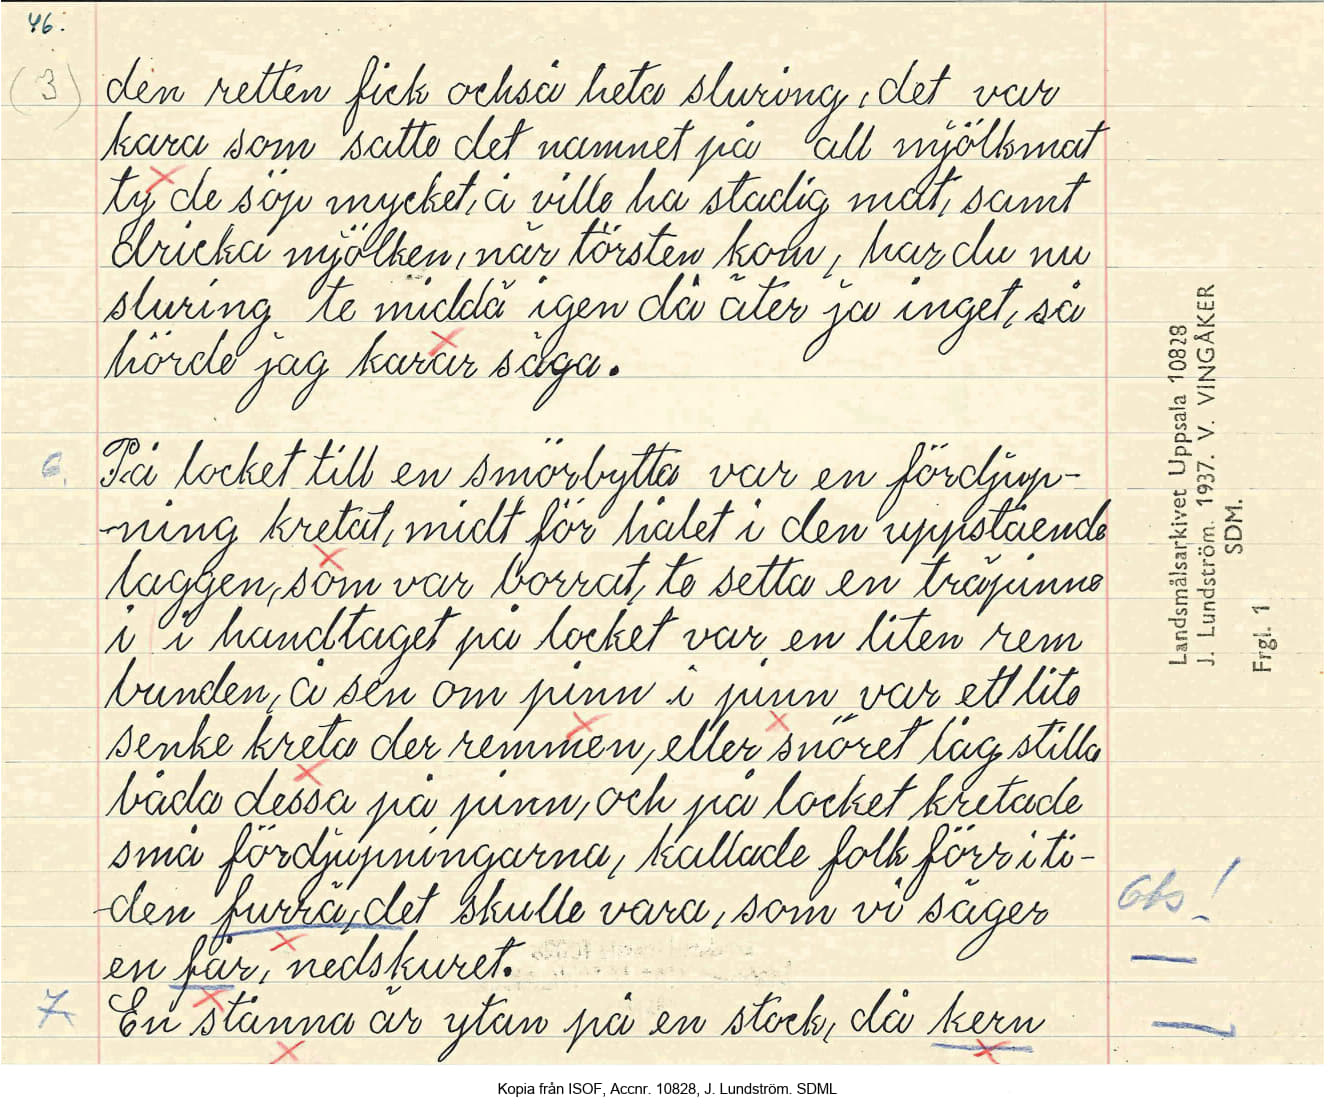 46.
(3)
den retten fick ochså heta sluring, det var
kara som satte det namnet på all mjölkmat
ty de söp mycket, å ville ha stadig mat, samt
dricka mjölken, när törsten kom, har du nu
sluring te middä igen då äter ja inget, så
hörde jag karar säga.
6.
På locket till en smörbytta var en fördjup-
-ning kretat, midt för hålet i den uppstående
laggen, som var borrat, te setta en träpinne
i i handtaget på locket var en liten rem
bunden, å sen om pinn i pinn var ett lite
senke kreta der remmen, eller snöret låg stilla
båda dessa på pinn, och på locket kretade
små fördjupningarna, kallade folk förr i ti-
-den furrä, det skulle vara, som vi säger
en får, nedskuret.
7
En stånna är ytan på en stock, då kern
Obs!
Landsmålsarkivet Uppsala 10828
J. Lundström. 1937. V. VINGÅKER
SDM.
Frgl. 1
Kopia från ISOF, Accnr. 10828, J. Lundström. SDML